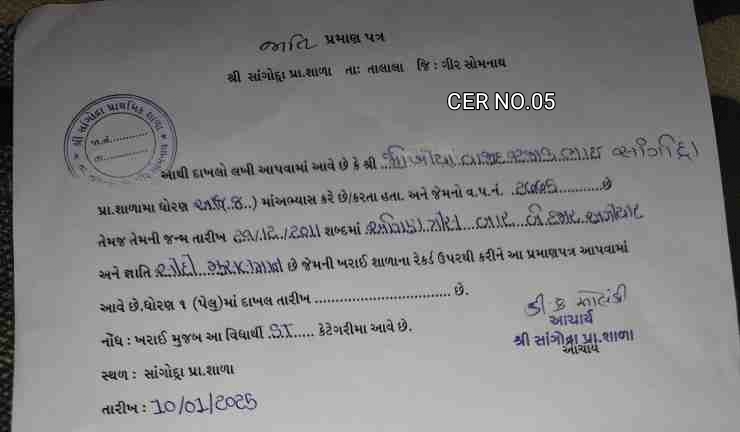 જાતિ પ્રમાણ પત્ર
શ્રી સાંગોદ્રા પ્રા.શાળા તાઃ તાલાલા જિ : ગીર સોમનાથ
CER NO.05
શ્રી સાંગોદ્રા પ્રાથમિક શાળા
જા.નં............
તા.............
આથી દાખલો લખી આપવામાં આવે છે કે શ્રી
પ્રા.શાળામા ધોરણ ) માંઅભ્યાસ કરે છે/કરતા હતા. અને જેમનો વ.પ.નં. છે
તેમજ તેમની જન્મ તારીખ ૨૧/૧૨/૨૦૧૧ શબ્દમાં
અને જ્ઞાતિ છે જેમની ખરાઈ શાળાના રેકર્ડ ઉપરથી કરીને આ પ્રમાણપત્ર આપવામાં
આવે છે.ધોરણ ૧ (પેલુ)માં દાખલ તારીખ ................................ છે.
નોંધ : ખરાઈ મુજબ આ વિદ્યાર્થી .S.T..... કેટેગરીમા આવે છે.
આચાર્ય
શ્રી સાંગોદ્રા પ્રા.શાળા
આચાર્ય
સ્થળ : સાંગોદ્રા પ્રા.શાળા
તારીખ : 10/01/2025